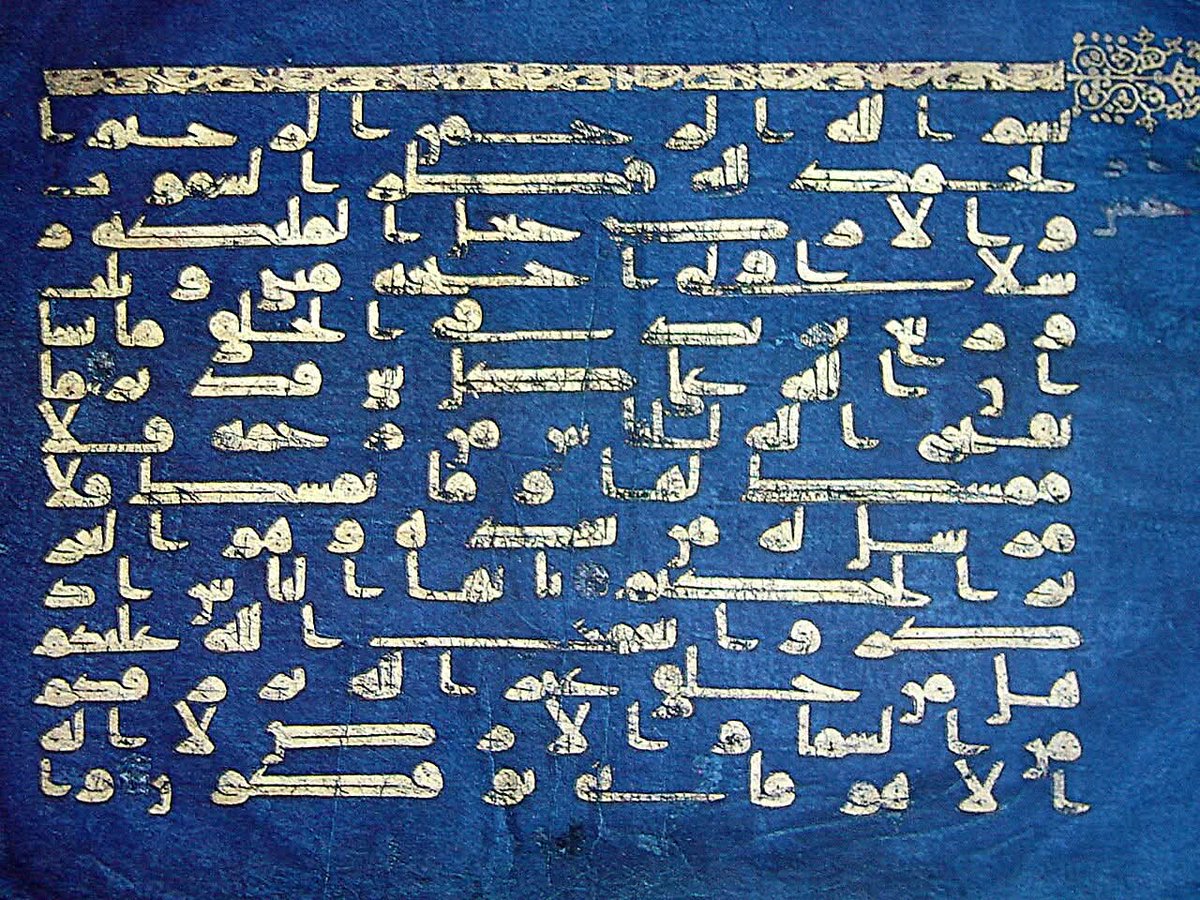 بسم الله الرحمن الرحيم ا
لحمد لله فطر السموت
و الارض جعل الملئكة ر
سلا اولى اجنحة مثنى و ثلث
و ربع يزيد فى الخلق ما يشا
ا ن الله على كل شى قدير ما
يفتح الله للناس من رحمة فلا
ممسك لها و ما يمسك فلا
مرسل له من بعده و هو العز
يز الحكيم يايها الناس اذ
كروا نعمت الله عليكم
هل من خلق غير الله يرزقكم
من السما و الارض لا اله
الا هو فانى توفكون و ا